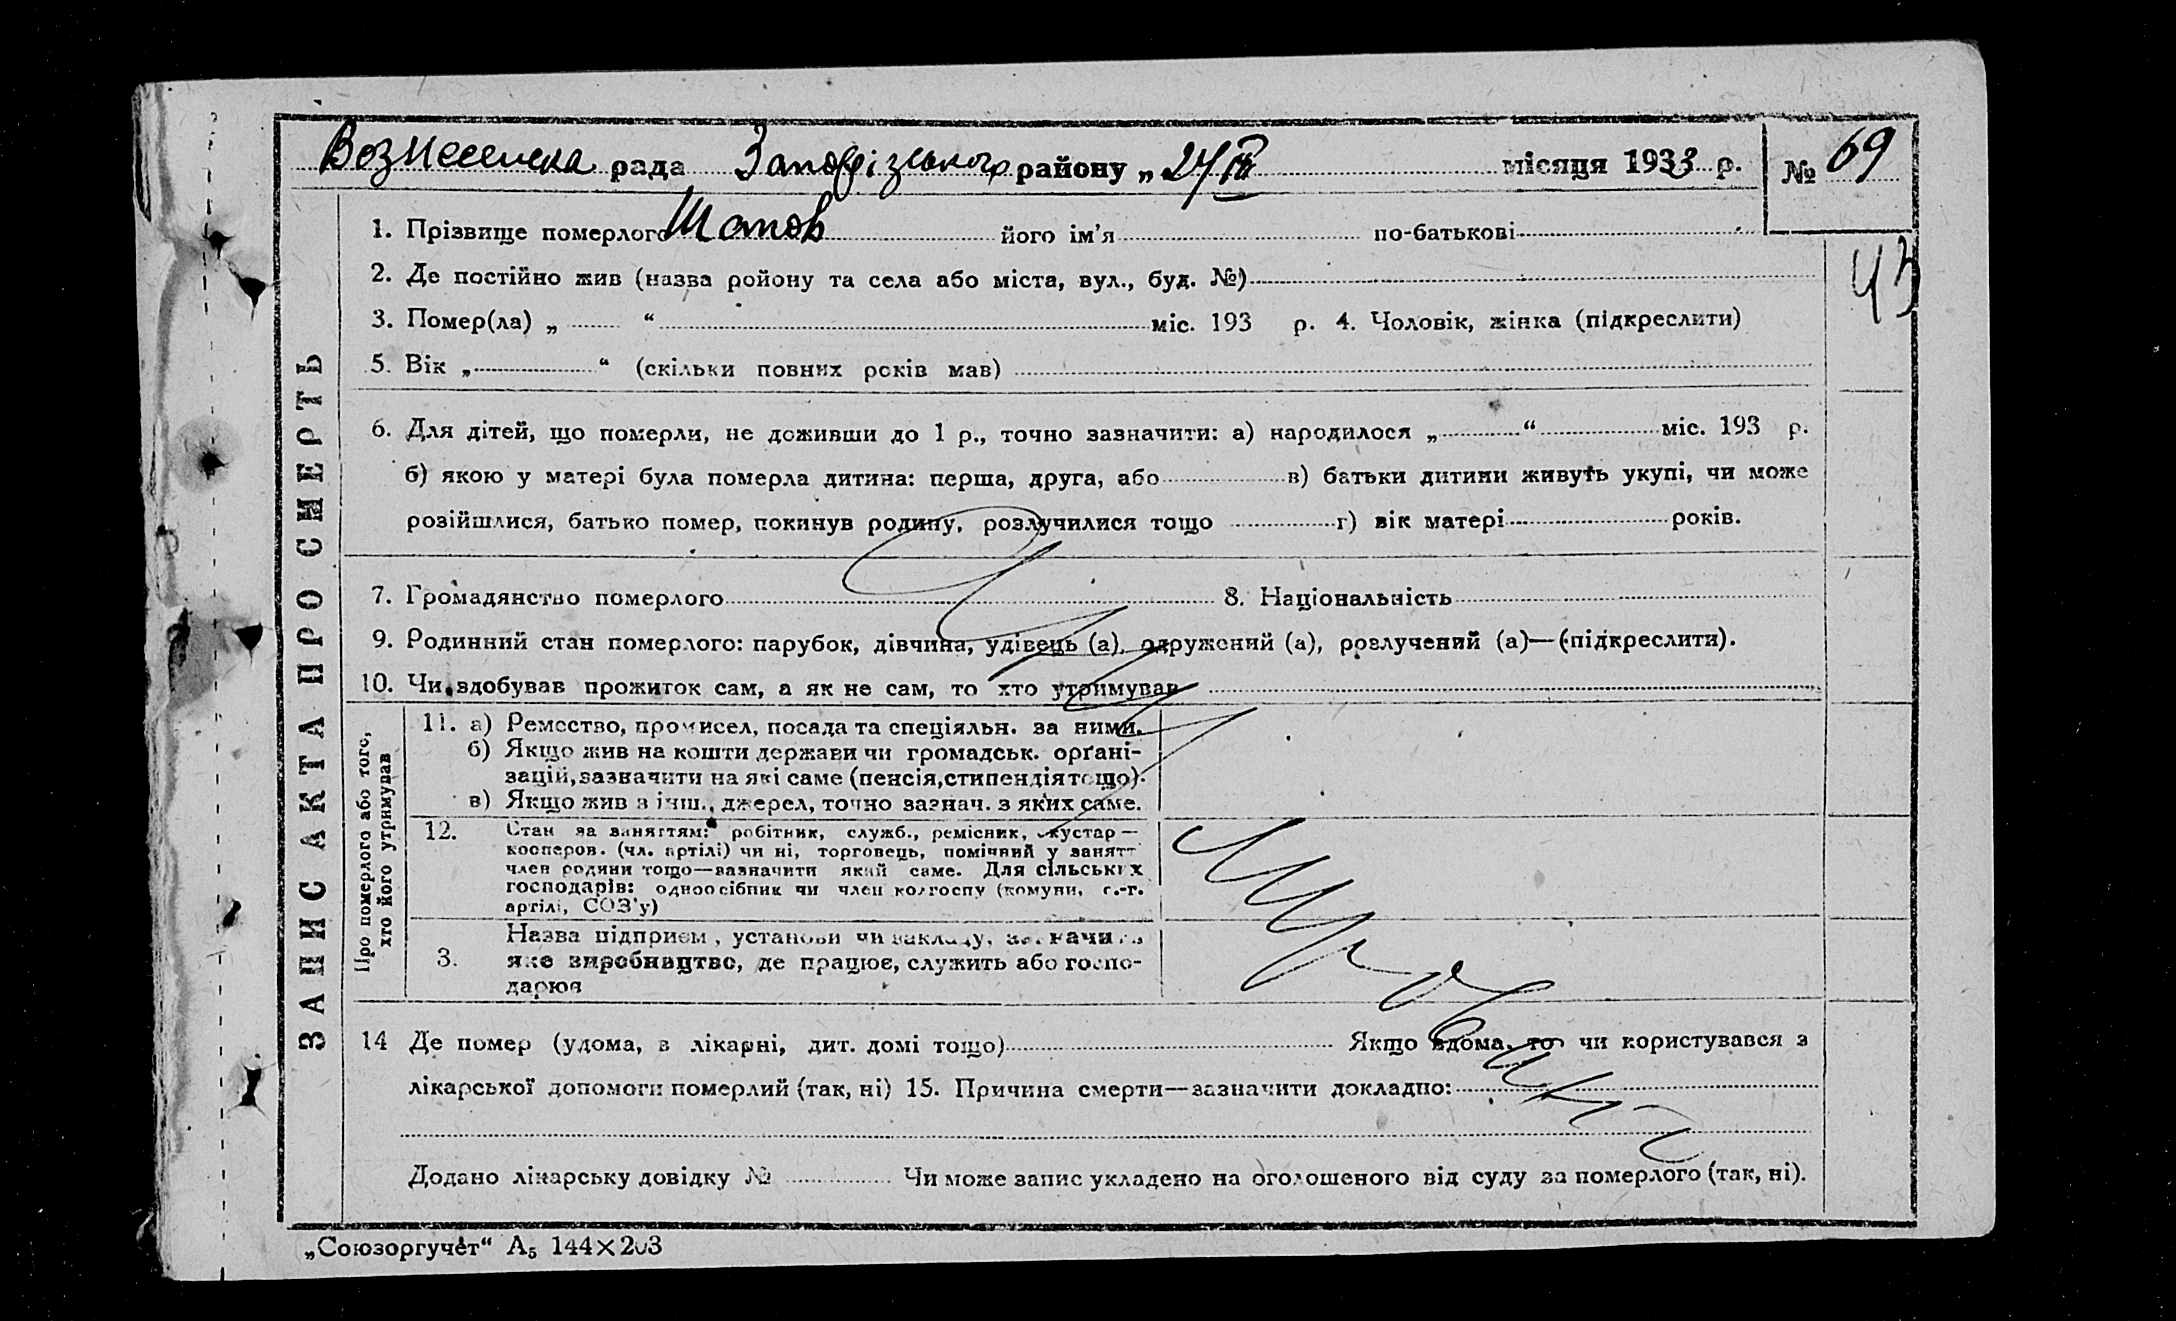 Вознесенська рада Запорізького району „ 24/IV місяця 1933 р. № 69
1. Прізвище померлого його ім’я по-батькові
43
2. Де постійно жив (назва ройону та села або міста, вул., буд. №)
3. Помер(ла) „ “ міс. 193 р. 4. Чоловік, жінка (підкреслити)
5. Вік „ “ (скільки повних років мав)
6. Для дітей, що померли, не доживши до 1 р., точно зазначити: а) народилося „ “ міс. 193 р.
б) якою у матері була померла дитина: перша, друга, або в) батьки дитини живуть укупі, чи може
розійшлися, батько помер, покинув родину, розлучилися тощо г) вік матері років.
7. Громадянство померлого 8. Національність
9. Родинний стан померлого: парубок, дівчина, удівець (а), одружений (а), розлучений (а)—(підкреслити).
10. Чи здобував прожиток сам, а як не сам, то хто утримував
ЗАПИС АКТА ПРО СМЕРТЬ
Про померлого або того,
хто його утримував
11. а) Ремество, промисел, посада та спеціяльн. за ними.
б) Якщо жив на кошти держави чи громадськ. орґані-
зацій, зазначити на які саме (пенсія, стипендія тощо).
в) Якщо жив з інш., джерел, точно зазнач. з яких саме.
12. Стан за заняттям: робітник, служб., ремісник, кустар —
кооперов. (чл. артілі) чи ні, торговець, помічний у занятт
член родини тощо—зазначити який саме. Для сільських
господарів: одноосібник чи член колгоспу (комуни, с.-г.
артілі, СОЗ’у)
3. Назва підприєм, установи чи закладу,
яке виробництво, де працює, служить або госпо-
дарює
14 Де помер (удома, в лікарні, дит. домі тощо) Якщо вдома, то чи користувався з
лікарської допомоги померлий (так, ні) 15. Причина смерти—зазначити докладно:
Додано лікарську довідку № Чи може запис укладено на оголошеного від суду за померлого (так, ні).
„Союзоргучёт“ А5 144×203